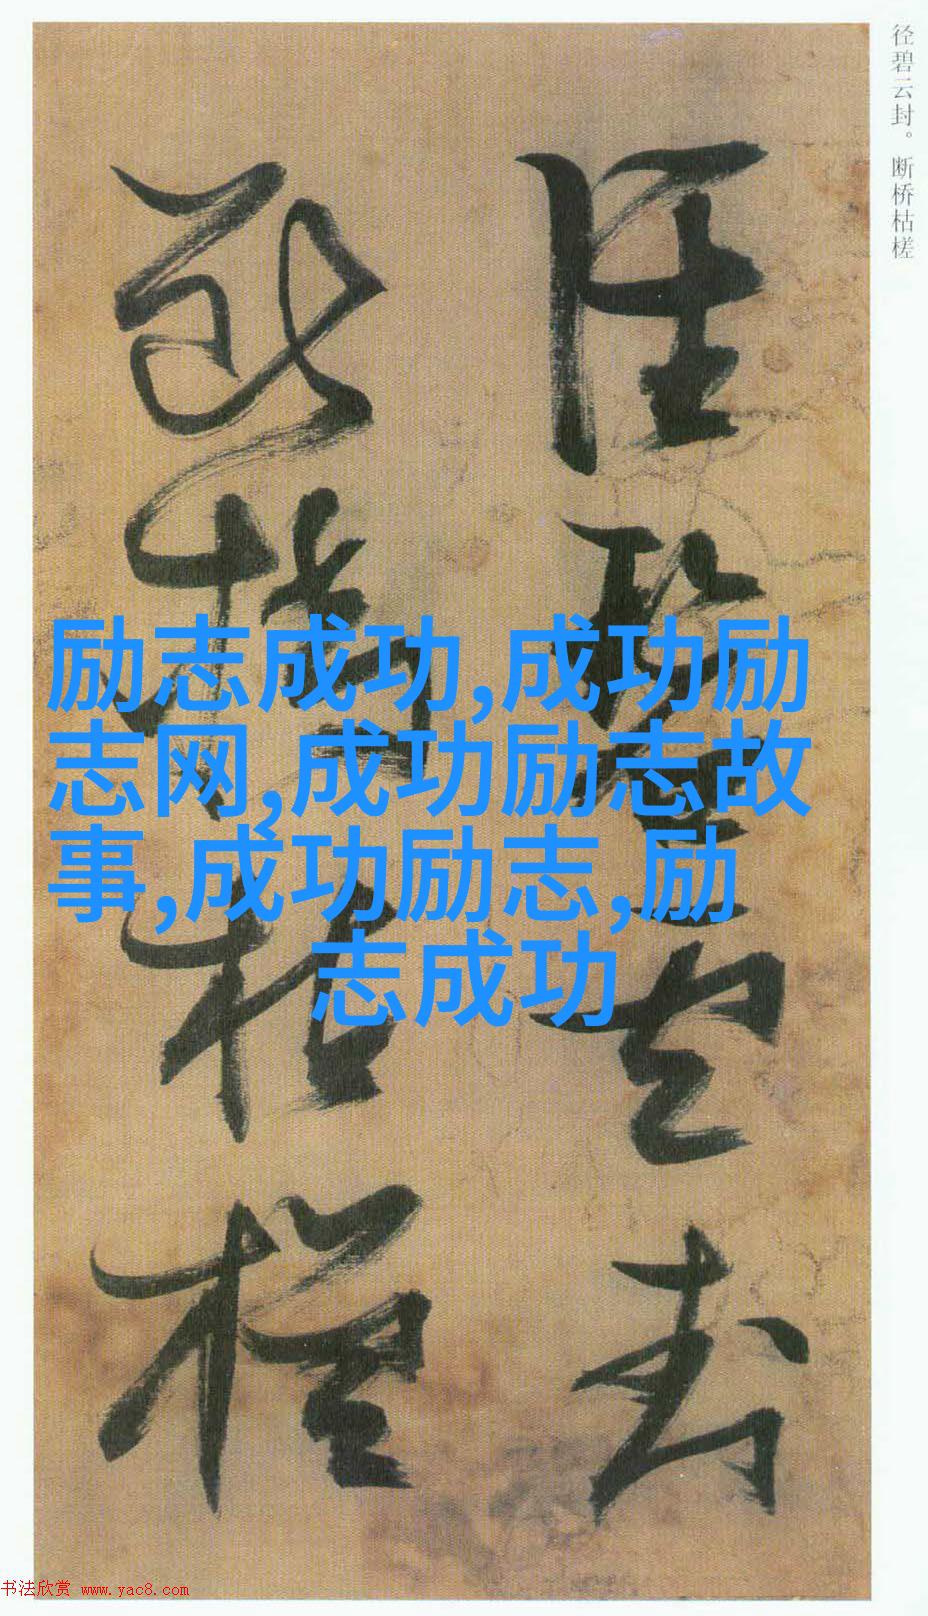 径碧云封。断桥枯槎
径碧云封
断桥枯槎
励志成功,成功励
志网,成功励志故
事,成功励志,励
志成功
书法欣赏 www.yac8.com